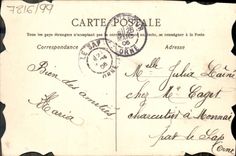 7816/99
CARTE POSTALE
Tous les pays étrangers n'acceptant pas la correspondance au recto, se renseigner à la Poste
Correspondance
Adresse
LE SAP
ORNE
ORNE
Bien des amitiés
Maria
Melle Julia
chez Mr Caget
charcutier à Monnai
par le Sap
Orne